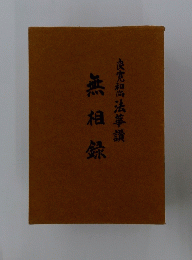 良寛和尚法華讃
無相録